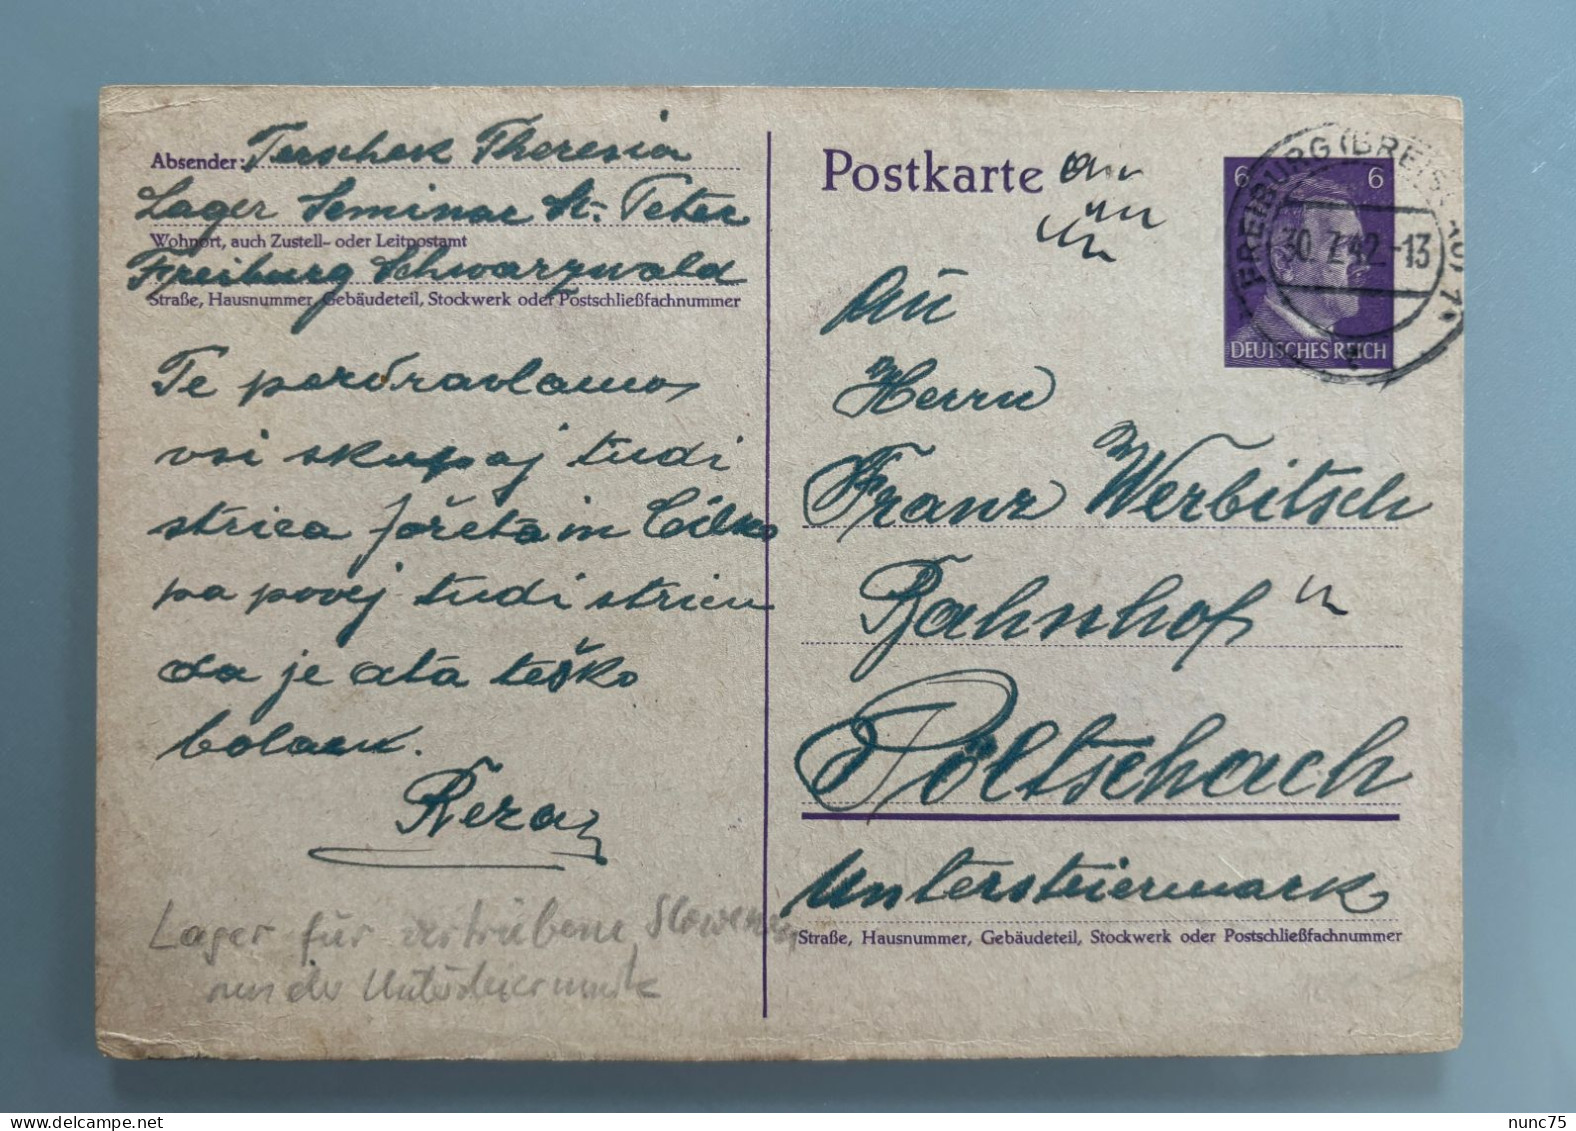 Absender: Terschek Theresia
Lager Seminar St. Peter
Wohnort, auch Zustell- oder Leitpostamt
Freiburg Schwarzwald
Straße, Hausnummer, Gebäudeteil, Stockwerk oder Postschließfachnummer
Te pozdravlamo
vsi skupaj tudi
strica Jožeta in Cilko
pa povej tudi stricu
da je ata teško
bolan.
Reza
Lager für vertriebene Slowenen
aus der Untersteiermark
Postkarte
6 6
DEUTSCHES REICH
FREIBURG (BREISGAU) 1
30.7.42.-13
An
Herrn
Franz Werbitsch
Bahnhof
Pöltschach
Untersteiermark
Straße, Hausnummer, Gebäudeteil, Stockwerk oder Postschließfachnummer
nunc75